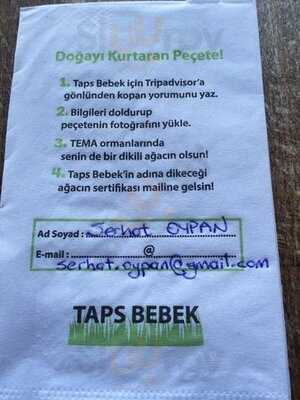 Doğayı Kurtaran Peçete!
1. Taps Bebek için Tripadvisor'a
gönlünden kopan yorumunu yaz.
2. Bilgileri doldurup
peçetenin fotoğrafını yükle.
3. TEMA ormanlarında
senin de bir dikili ağacın olsun!
4. Taps Bebek'in adına dikeceği
ağacın sertifikası mailine gelsin!
Ad Soyad : Serhat OYPAN
E-mail : @
serhat.oypan@gmail.com
TAPS BEBEK